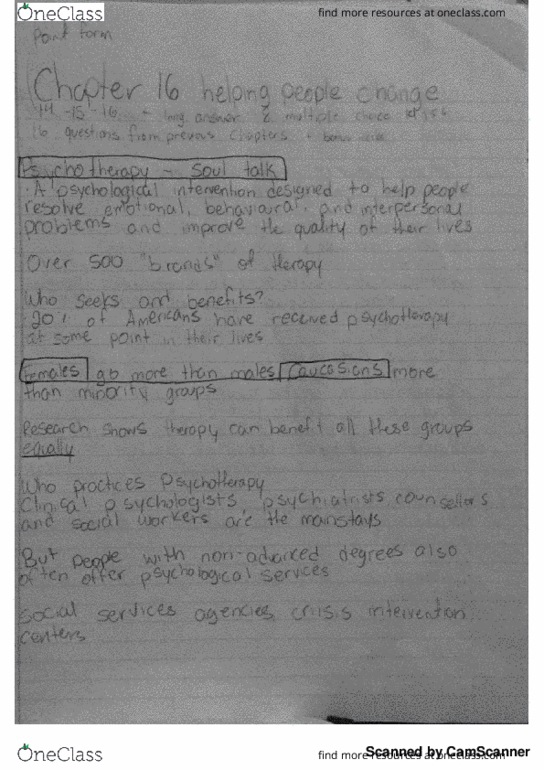 OneClass
find more resources at oneclass.com
Point form
Chapter 16 helping people change
14 -15 -16 - long answer & multiple choice
16 questions from prevous chapters + bonus
Psychotherapy - Soul talk
· A psychological intervention designed to help people
resolve emotional, behavioural, and interpersonal
problems and improve the quality of their lives
Over 500 "brands" of therapy
Who seeks and benefits?
· 20% of Americans have received psychotherapy
at some point in their lives
Females go more than males Caucasians more
than minority groups
Research shows therapy can benefit all these groups
equally
Who practices Psychotherapy
Clinical psychologists psychiatrists counsellors
and social workers are the mainstays
But people with non-advanced degrees also
often offer psychological services
Social services agencies, crisis intervention
centers
OneClass
find more resources at oneclass.com
Scanned by CamScanner